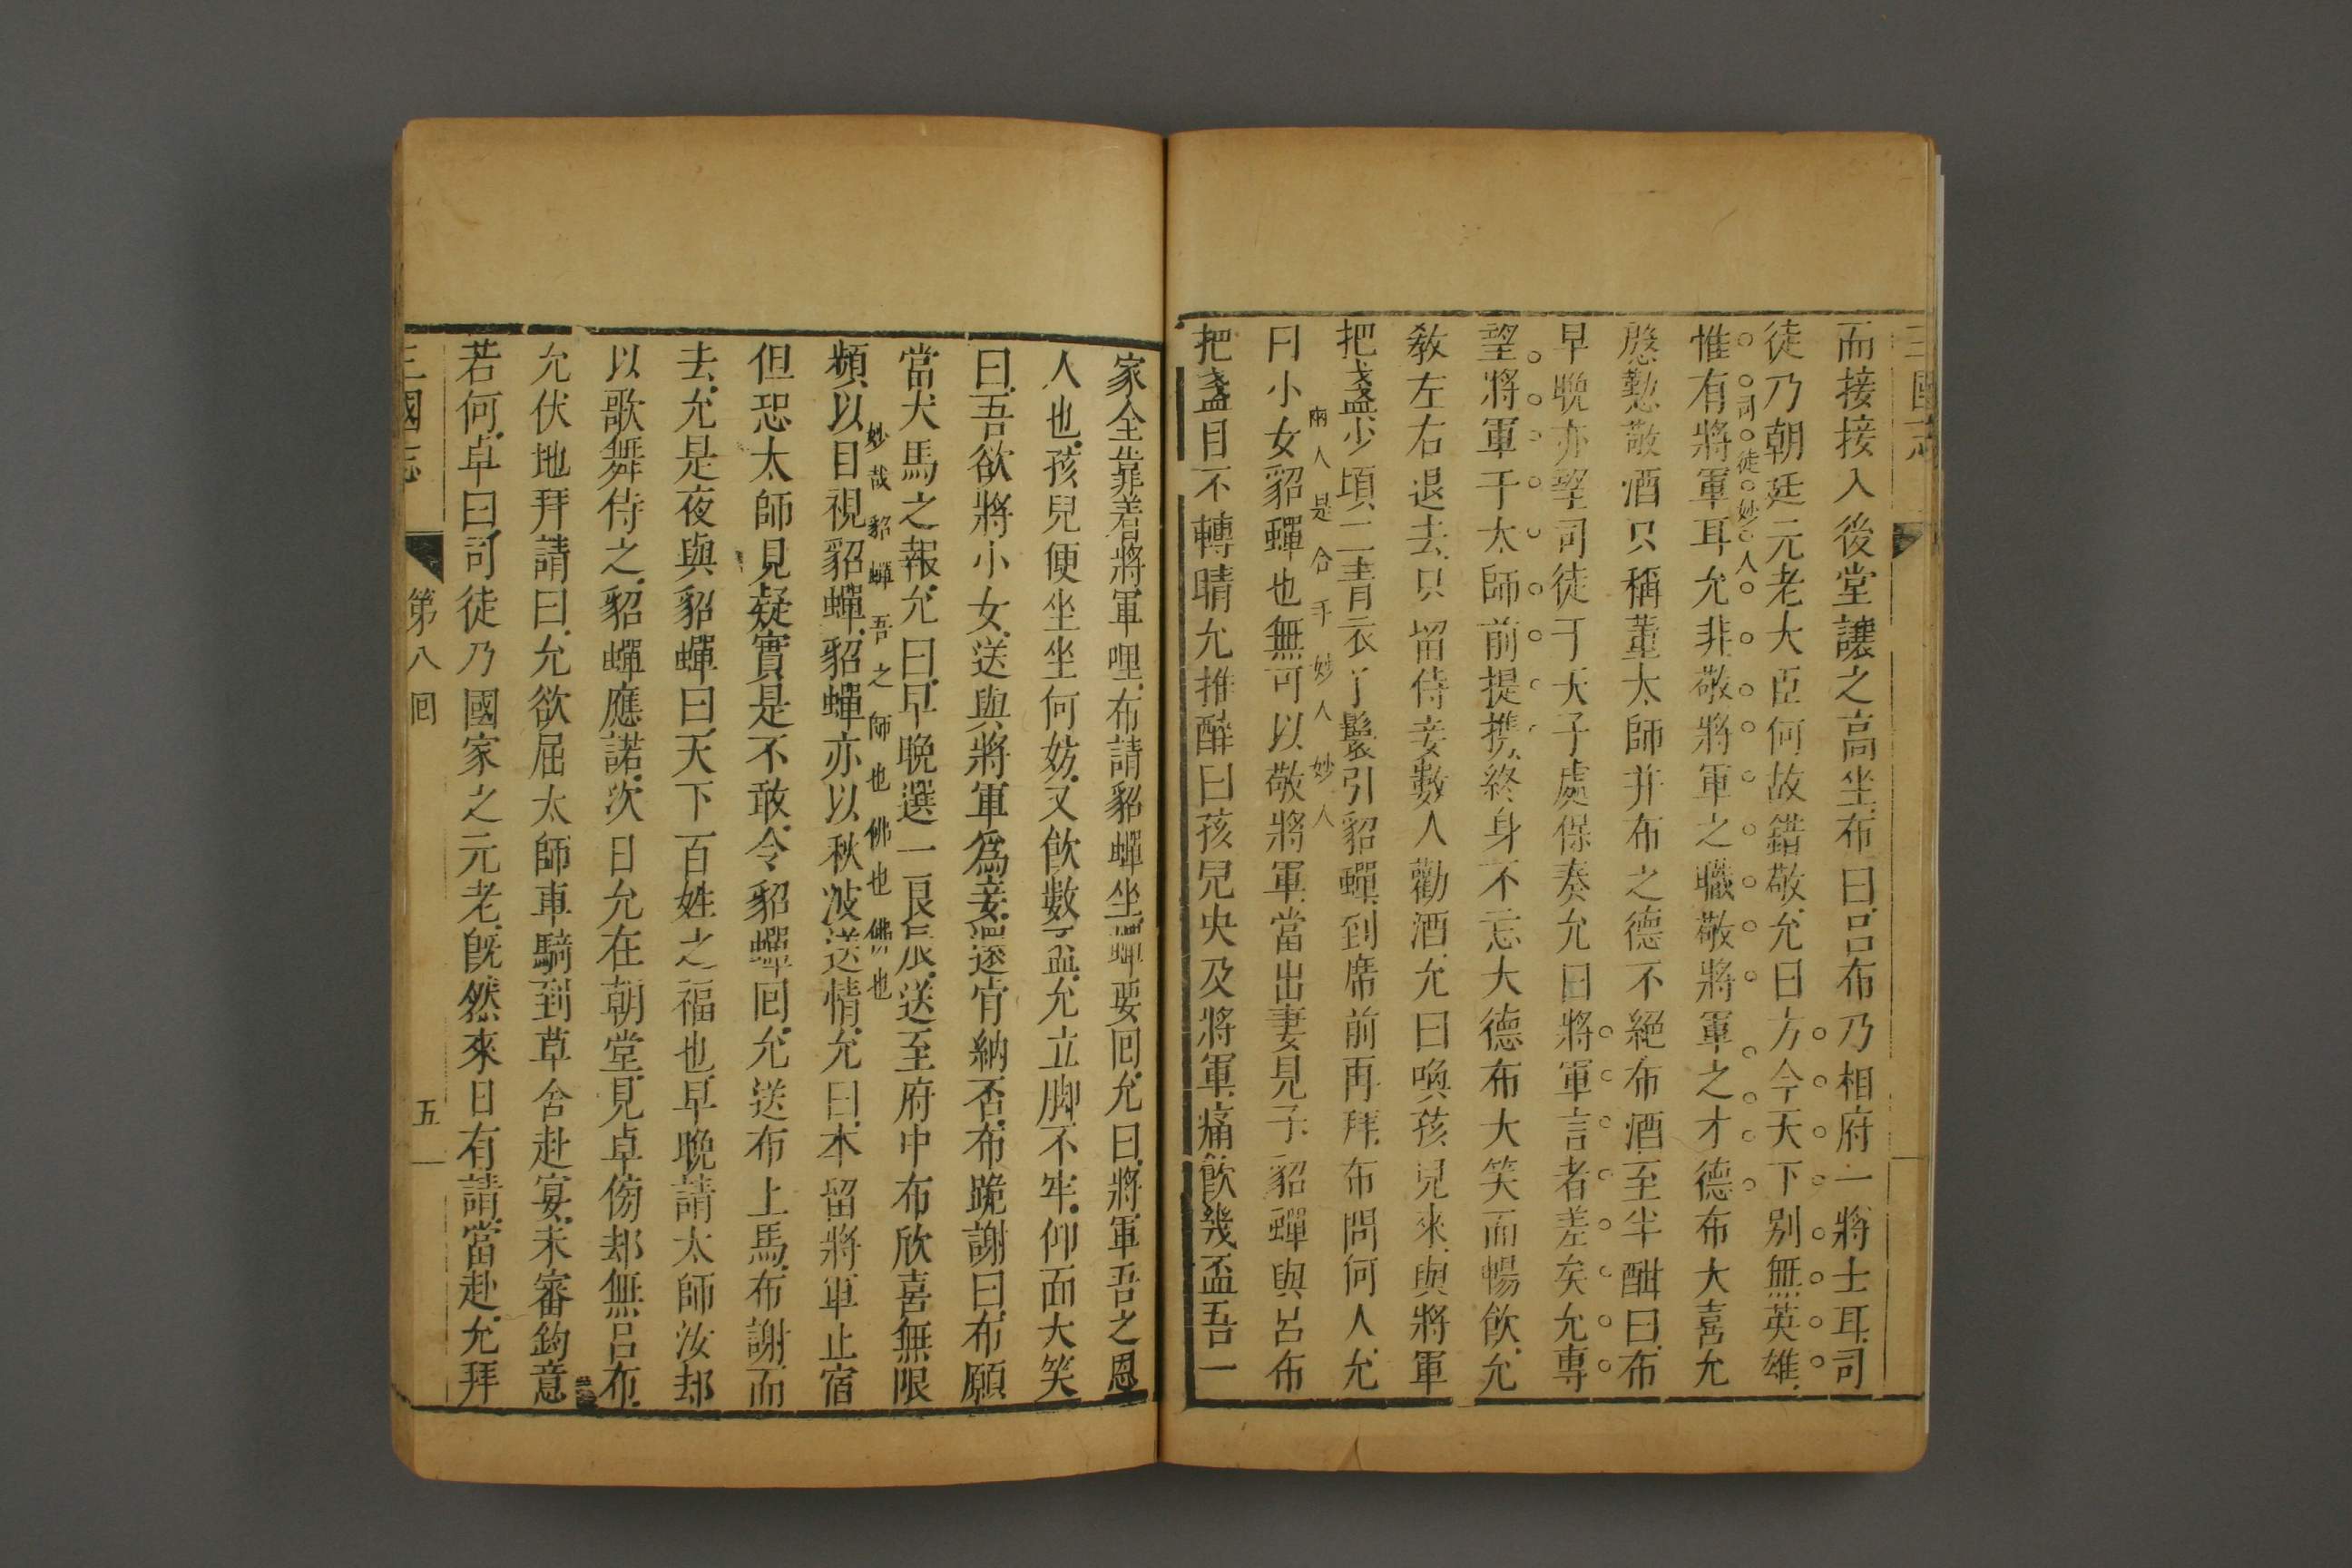 三國志
而接接入後堂讓之高坐布曰呂布乃相府一將士耳司
徒乃朝廷元老大臣何故錯敬允曰方今天下別無英雄
司徒妙人
惟有將軍耳允非敬將軍之職敬將軍之才德布大喜允
慇懃敬酒只稱董太師并布之德不絕布酒至半酣曰布
早晚亦望司徒于天子處保奏允曰將軍言者差矣允專
望將軍于太師前提携終身不忘大德布大笑而暢飲允
教左右退去只留侍妾數人勸酒允曰喚孩兒來與將軍
把盞少頃二青衣丫鬟引貂蟬到席前再拜布問何人允
兩人是合手妙人妙人
曰小女貂蟬也無可以敬將軍當出妻見子貂蟬與呂布
把盞目不轉睛允推醉曰孩兒央及將軍痛飲幾盃吾一
家全靠着將軍哩布請貂蟬坐蟬要回允曰將軍吾之恩
人也孩兒便坐坐何妨又飲數盃允立脚不牢仰面大笑
曰吾欲將小女送與將軍爲妾還肯納否布跪謝曰布願
當犬馬之報允曰早晚選一良辰送至府中布欣喜無限
妙哉貂蟬吾之師也佛也佛也
頻以目視貂蟬貂蟬亦以秋波送情允曰本留將軍止宿
但恐太師見疑實是不敢令貂蟬回允送布上馬布謝而
去允是夜與貂蟬曰天下百姓之福也早晚請太師汝却
以歌舞侍之貂蟬應諾次日允在朝堂見卓傍却無呂布
允伏地拜請曰允欲屈太師車騎到草舍赴宴未審鈞意
若何卓曰司徒乃國家之元老既然來日有請當赴允拜
三國志
第八回
五